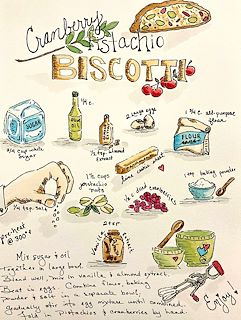 Cranberry
Pistachio
BISCOTTI
SUGAR
3/4 cup white
sugar
OLIVE
OIL
1/4 c.
1/2 tsp almond
extract
2 large eggs
1 3/4 c. all-purpose
flour
FLOUR
1/4 tsp. salt
1 1/2 cups
pistachio
nuts
1/2 c dried cranberries
1 tsp baking powder
preheat
@ 300°
2 tsp
Mix sugar & oil
together in large bowl.
Blend well. Add in vanilla & almond extract.
Beat in eggs. Combine flour, baking
powder & salt in a separate bowl.
Gradually stir into egg mixture until combined.
fold in Pistachios & cranberries by hand.
Enjoy!